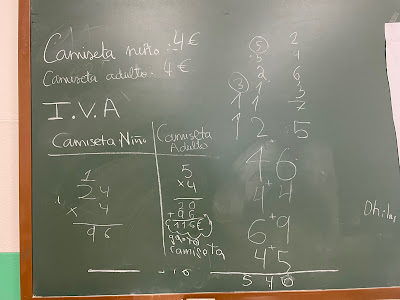 Camiseta niño: 4€
Camiseta adulto: 4€
I.V.A
Camiseta Niño
Camiseta Adulto
1
24
× 4
96
5
×4
20
+96
116€
camiseta
5 2
5 4
2 6
3 1 3
1 1 7
1 2 5
46
+
44
+
69
+
45
5 4 0